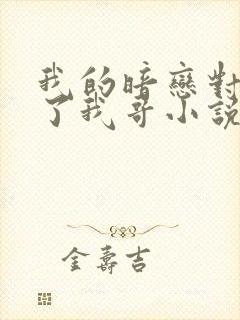 我的暗戀對
了我哥小說
金壽吉